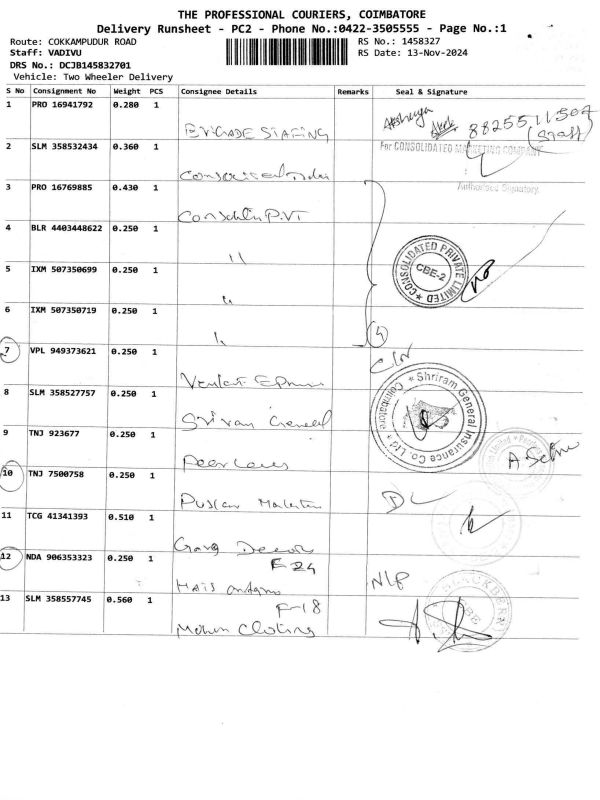 THE PROFESSIONAL COURIERS, COIMBATORE
Delivery Runsheet - PC2 - Phone No.:0422-3505555 - Page No.:1
Route: COKKAMPUDUR ROAD
RS No.: 1458327
Staff: VADIVU
RS Date: 13-Nov-2024
DRS No.: DCJB145832701
Vehicle: Two Wheeler Delivery
S No Consignment No Weight PCS Consignee Details Remarks Seal & Signature
1 PRO 16941792 0.280 1
Akshaya 8825511507
(Staff)
2 SLM 358532434 0.360 1
For CONSOLIDATED MARKETING COMPANY
Authorised Signatory.
3 PRO 16769885 0.430 1
P.VT
4 BLR 4403448622 0.250 1
"
CONSOLIDATED PRIVATE LIMITED
CBE-2
5 IXM 507350699 0.250 1
"
6 IXM 507350719 0.250 1
"
4
7 VPL 949373621 0.250 1
8 SLM 358527757 0.250 1
Shriram General Insurance Co. Ltd
Coimbatore
9 TNJ 923677 0.250 1
10 TNJ 7500758 0.250 1
DL
11 TCG 41341393 0.510 1
12 NDA 906353323 0.250 1
F-24
NLP
13 SLM 358557745 0.560 1
F-18
Mohan Clothing